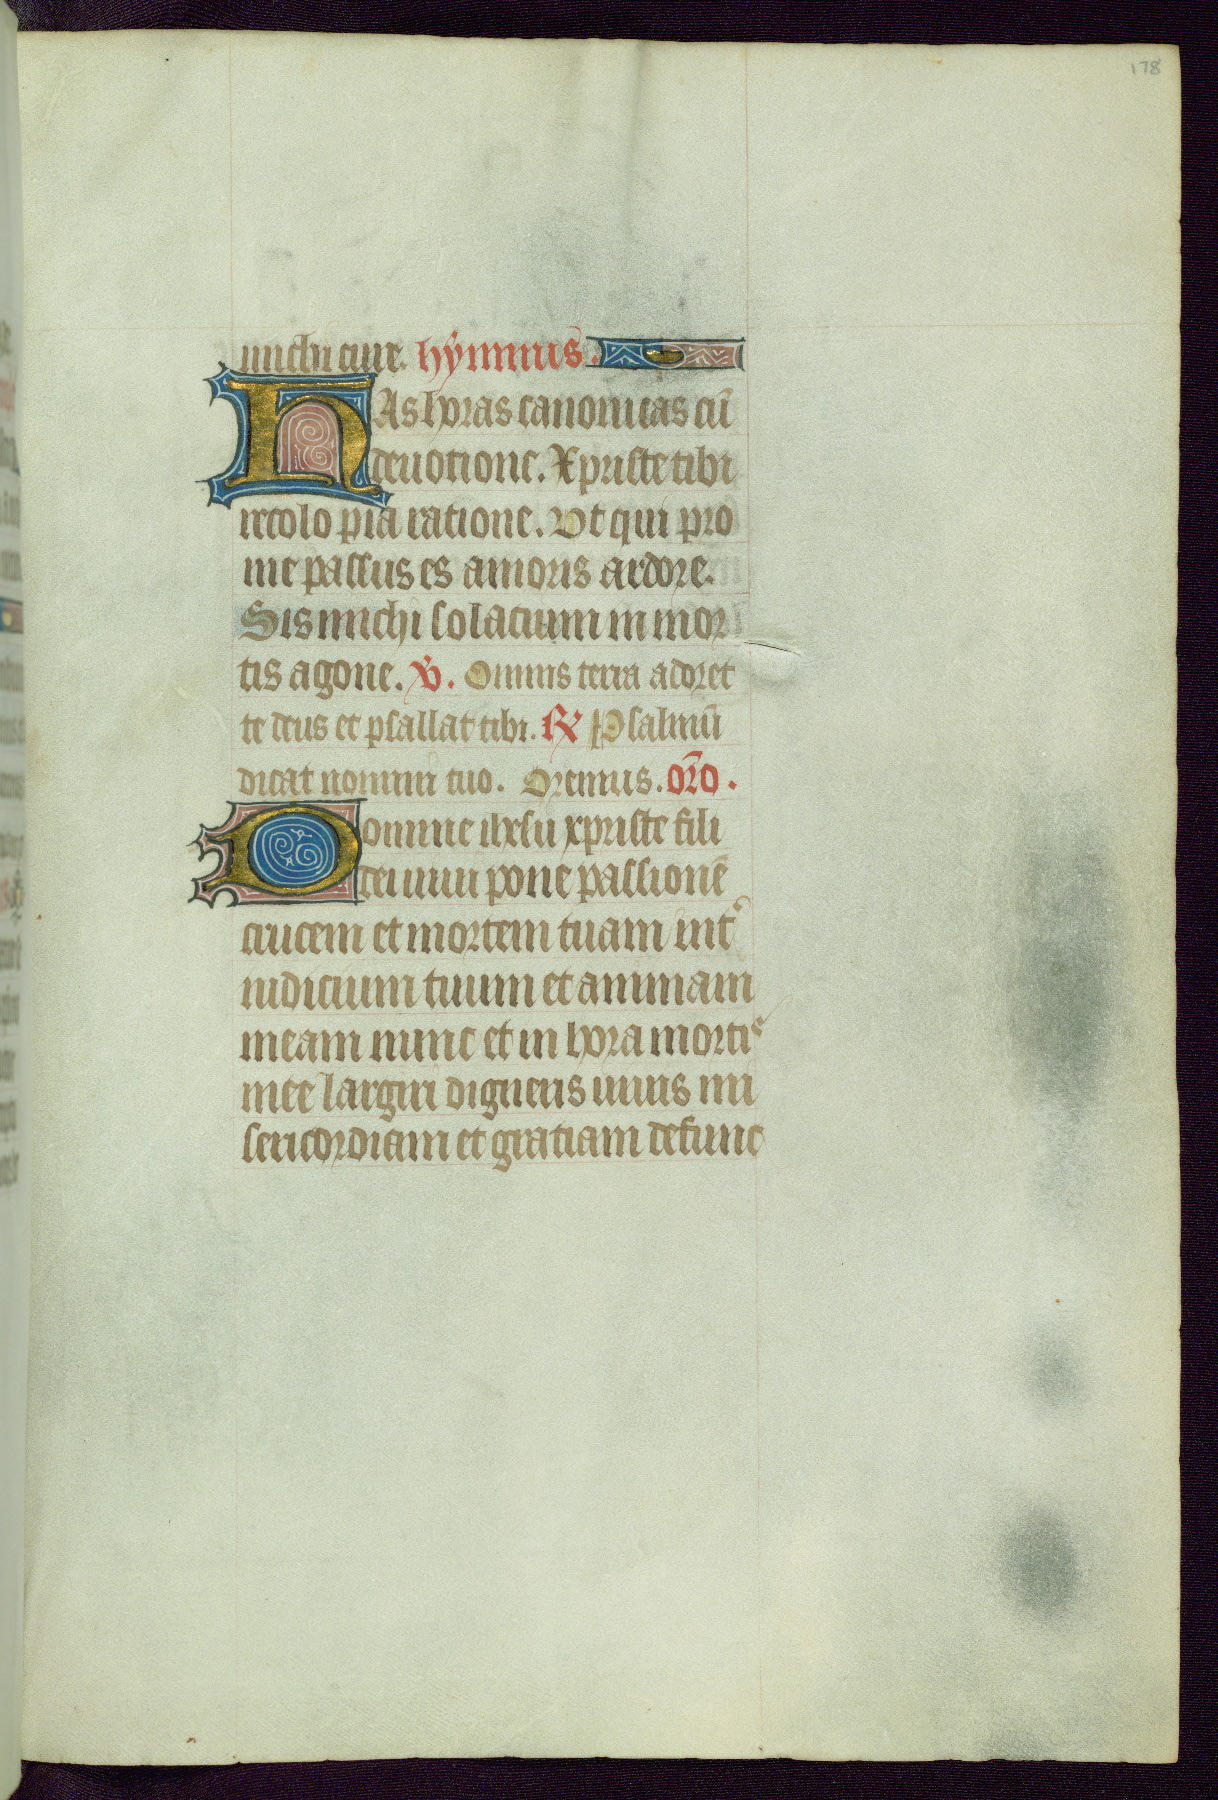 178
michi cure. hymnus.
HAs horas canonicas cū
deuotione. Xpriste tibi
recolo pia ratione. Vt qui pro
me passus es amoris ardore.
Sis michi solacium in mor
tis agone. ℣. Omnis terra adoret
te deus et psallat tibi. ℟ Psalmū
dicat nomini tuo. Oremus. orō.
Domine ihesu xpriste fili
dei uiui pone passionē
crucem et mortem tuam int̉
iudicium tuum et animam
meam nunc et in hora mortis
mee largiri digneris uiuis mi
sericordiam et gratiam defunc